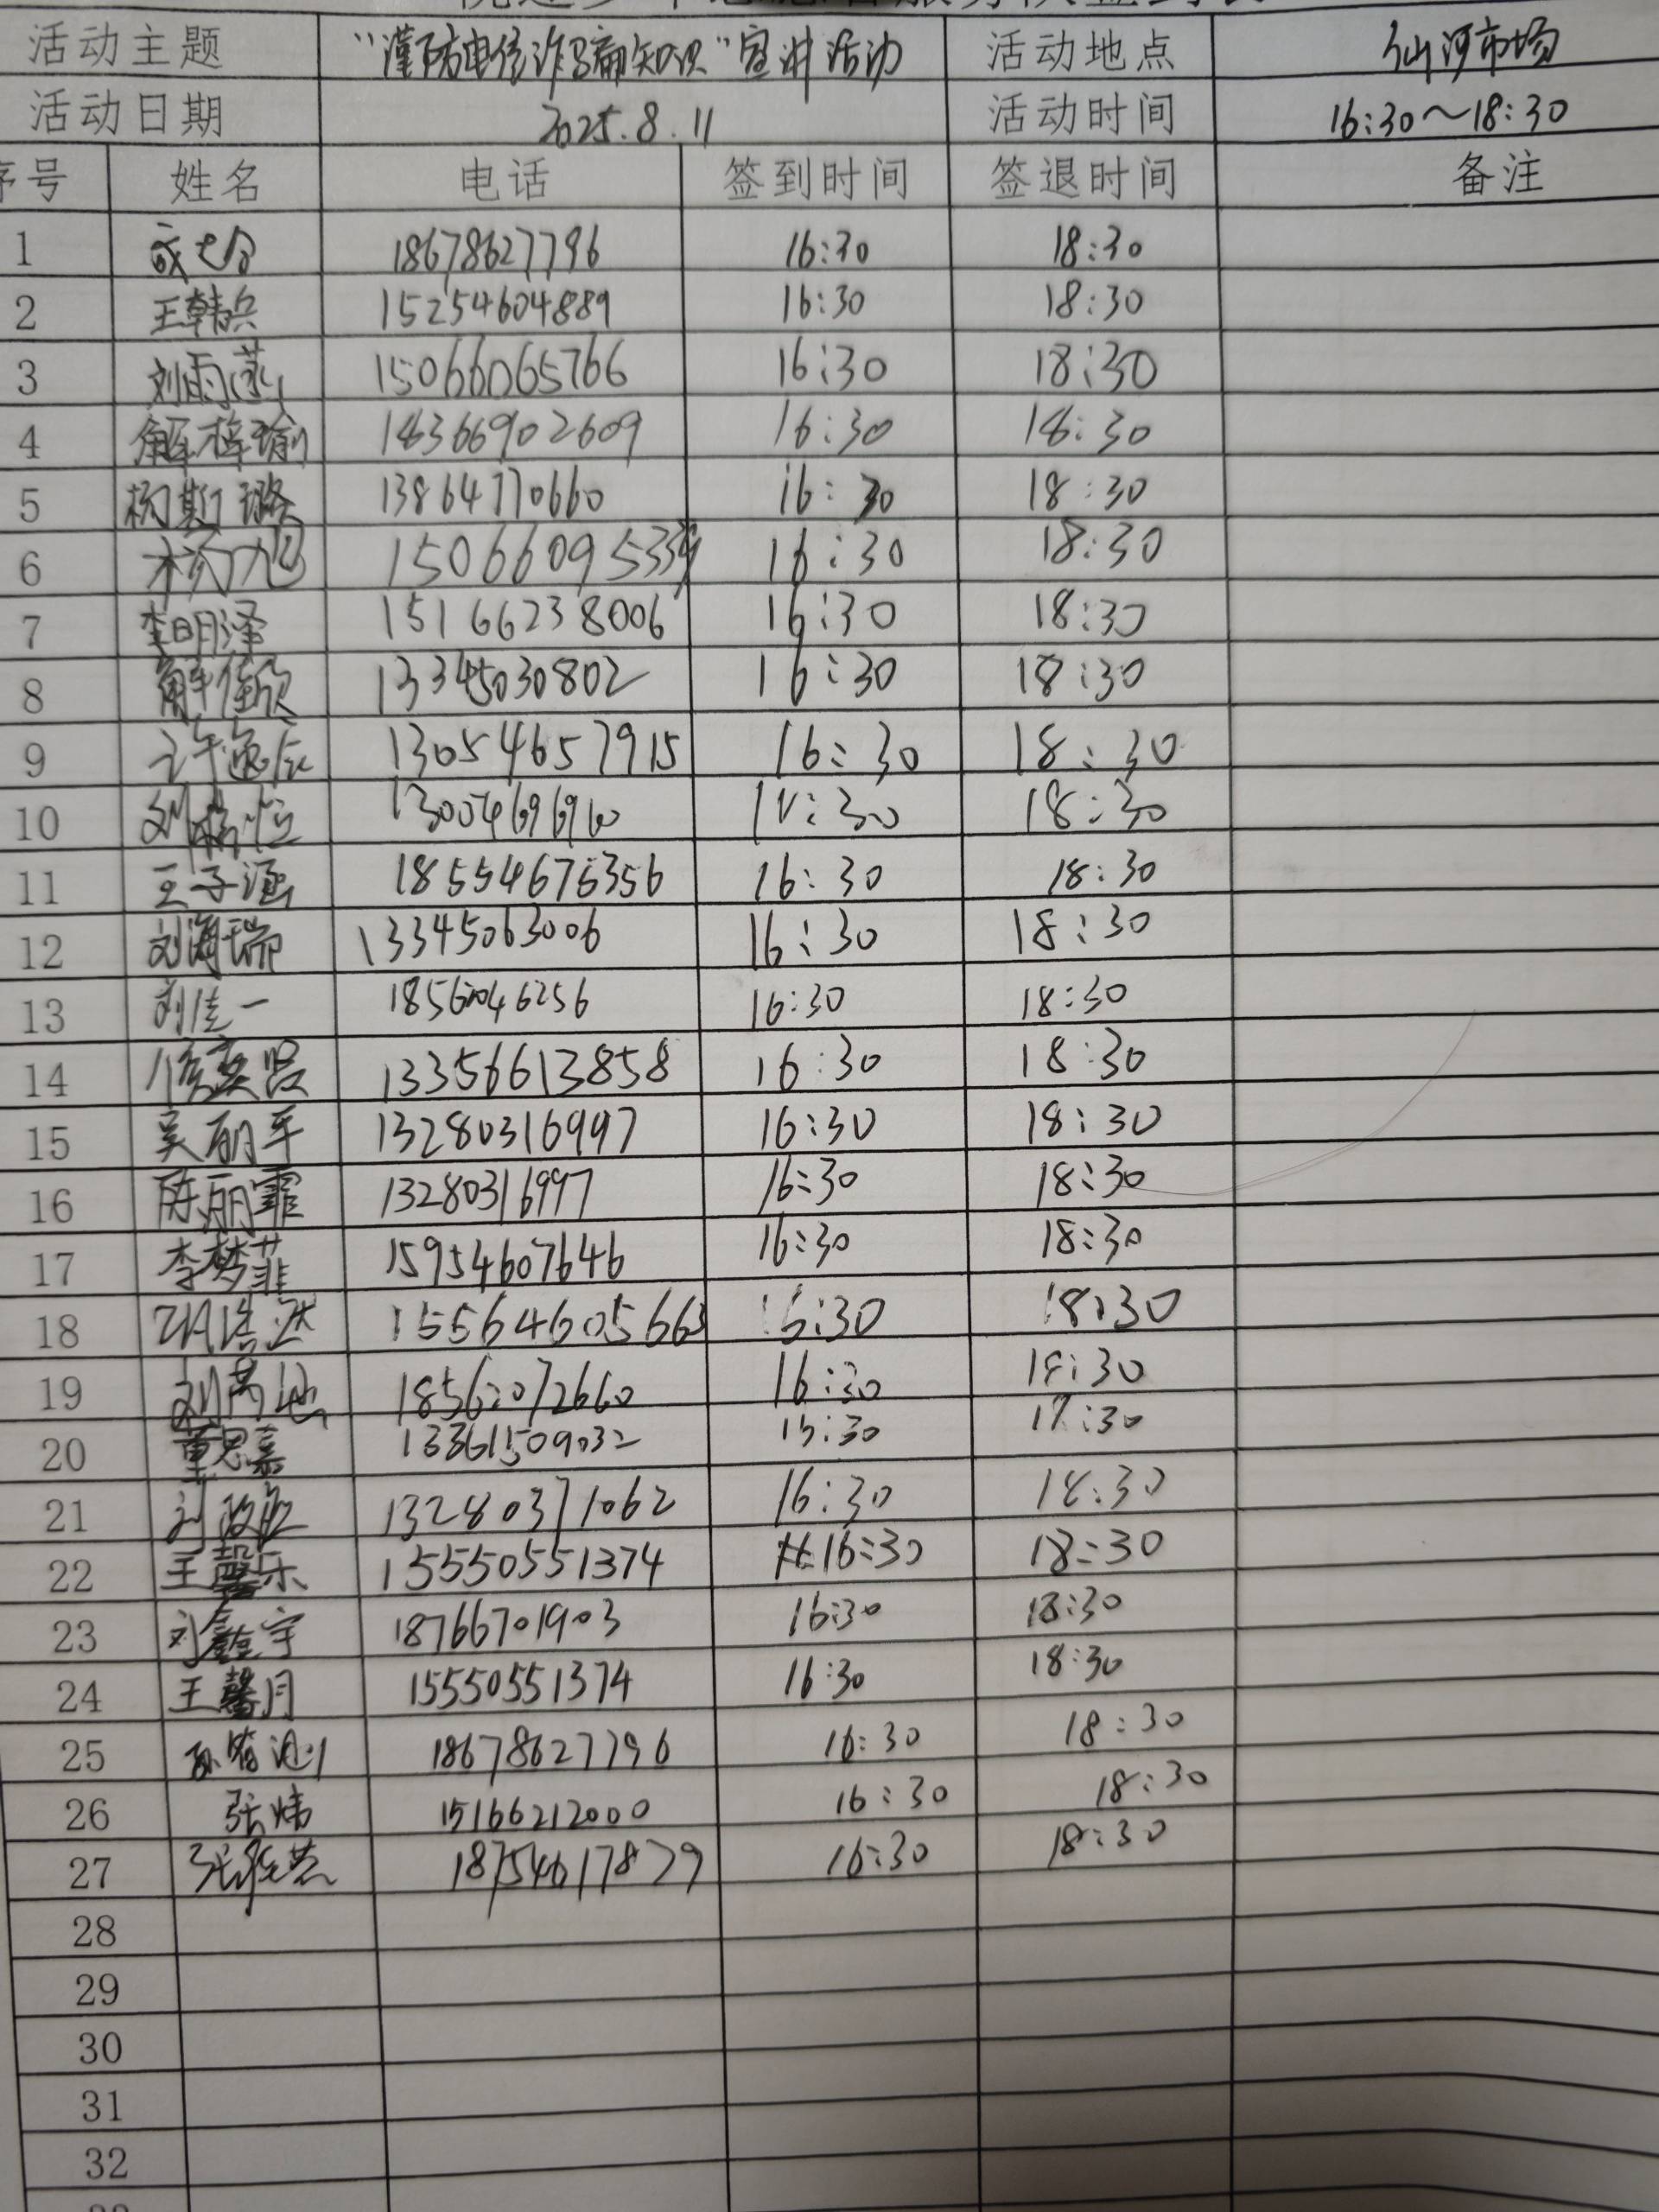 活动主题 "谨防电信诈骗知识"宣讲活动 活动地点 仙河市场
活动日期 2025.8.11 活动时间 16:30～18:30
序号 姓名 电话 签到时间 签退时间 备注
1 18678627796 16:30 18:30
2 王韩兵 15254604889 16:30 18:30
3 刘雨涵 15066065766 16:30 18:30
4 解梓瑜 18366902609 16:30 18:30
5 杨斯璐 13864770660 16:30 18:30
6 16:30 18:30
7 李明泽 15166238006 16:30 18:30
8 解佳欣 13345030802 16:30 18:30
9 13054657915 16:30 18:30
10 18:30
11 王子涵 18554676356 16:30 18:30
12 刘海瑞 13345063006 16:30 18:30
13 刘佳一 16:30 18:30
14 13356613858 16:30 18:30
15 吴丽平 13280316997 16:30 18:30
16 陈丽霏 13280316997 16:30 18:30
17 李梦菲 15954607646 16:30 18:30
18 16:30 18:30
19 18562072660 16:30 18:30
20 董思嘉 13361509032
21 13280371062 16:30 18:30
22 王馨乐 15550551374 16:30 18:30
23 刘鑫宇 18766701903 16:30 18:30
24 王馨月 15550551374 16:30 18:30
25 18678627796 16:30 18:30
26 张炜 15166212000 16:30 18:30
27 18754617879 16:30 18:30
28
29
30
31
32